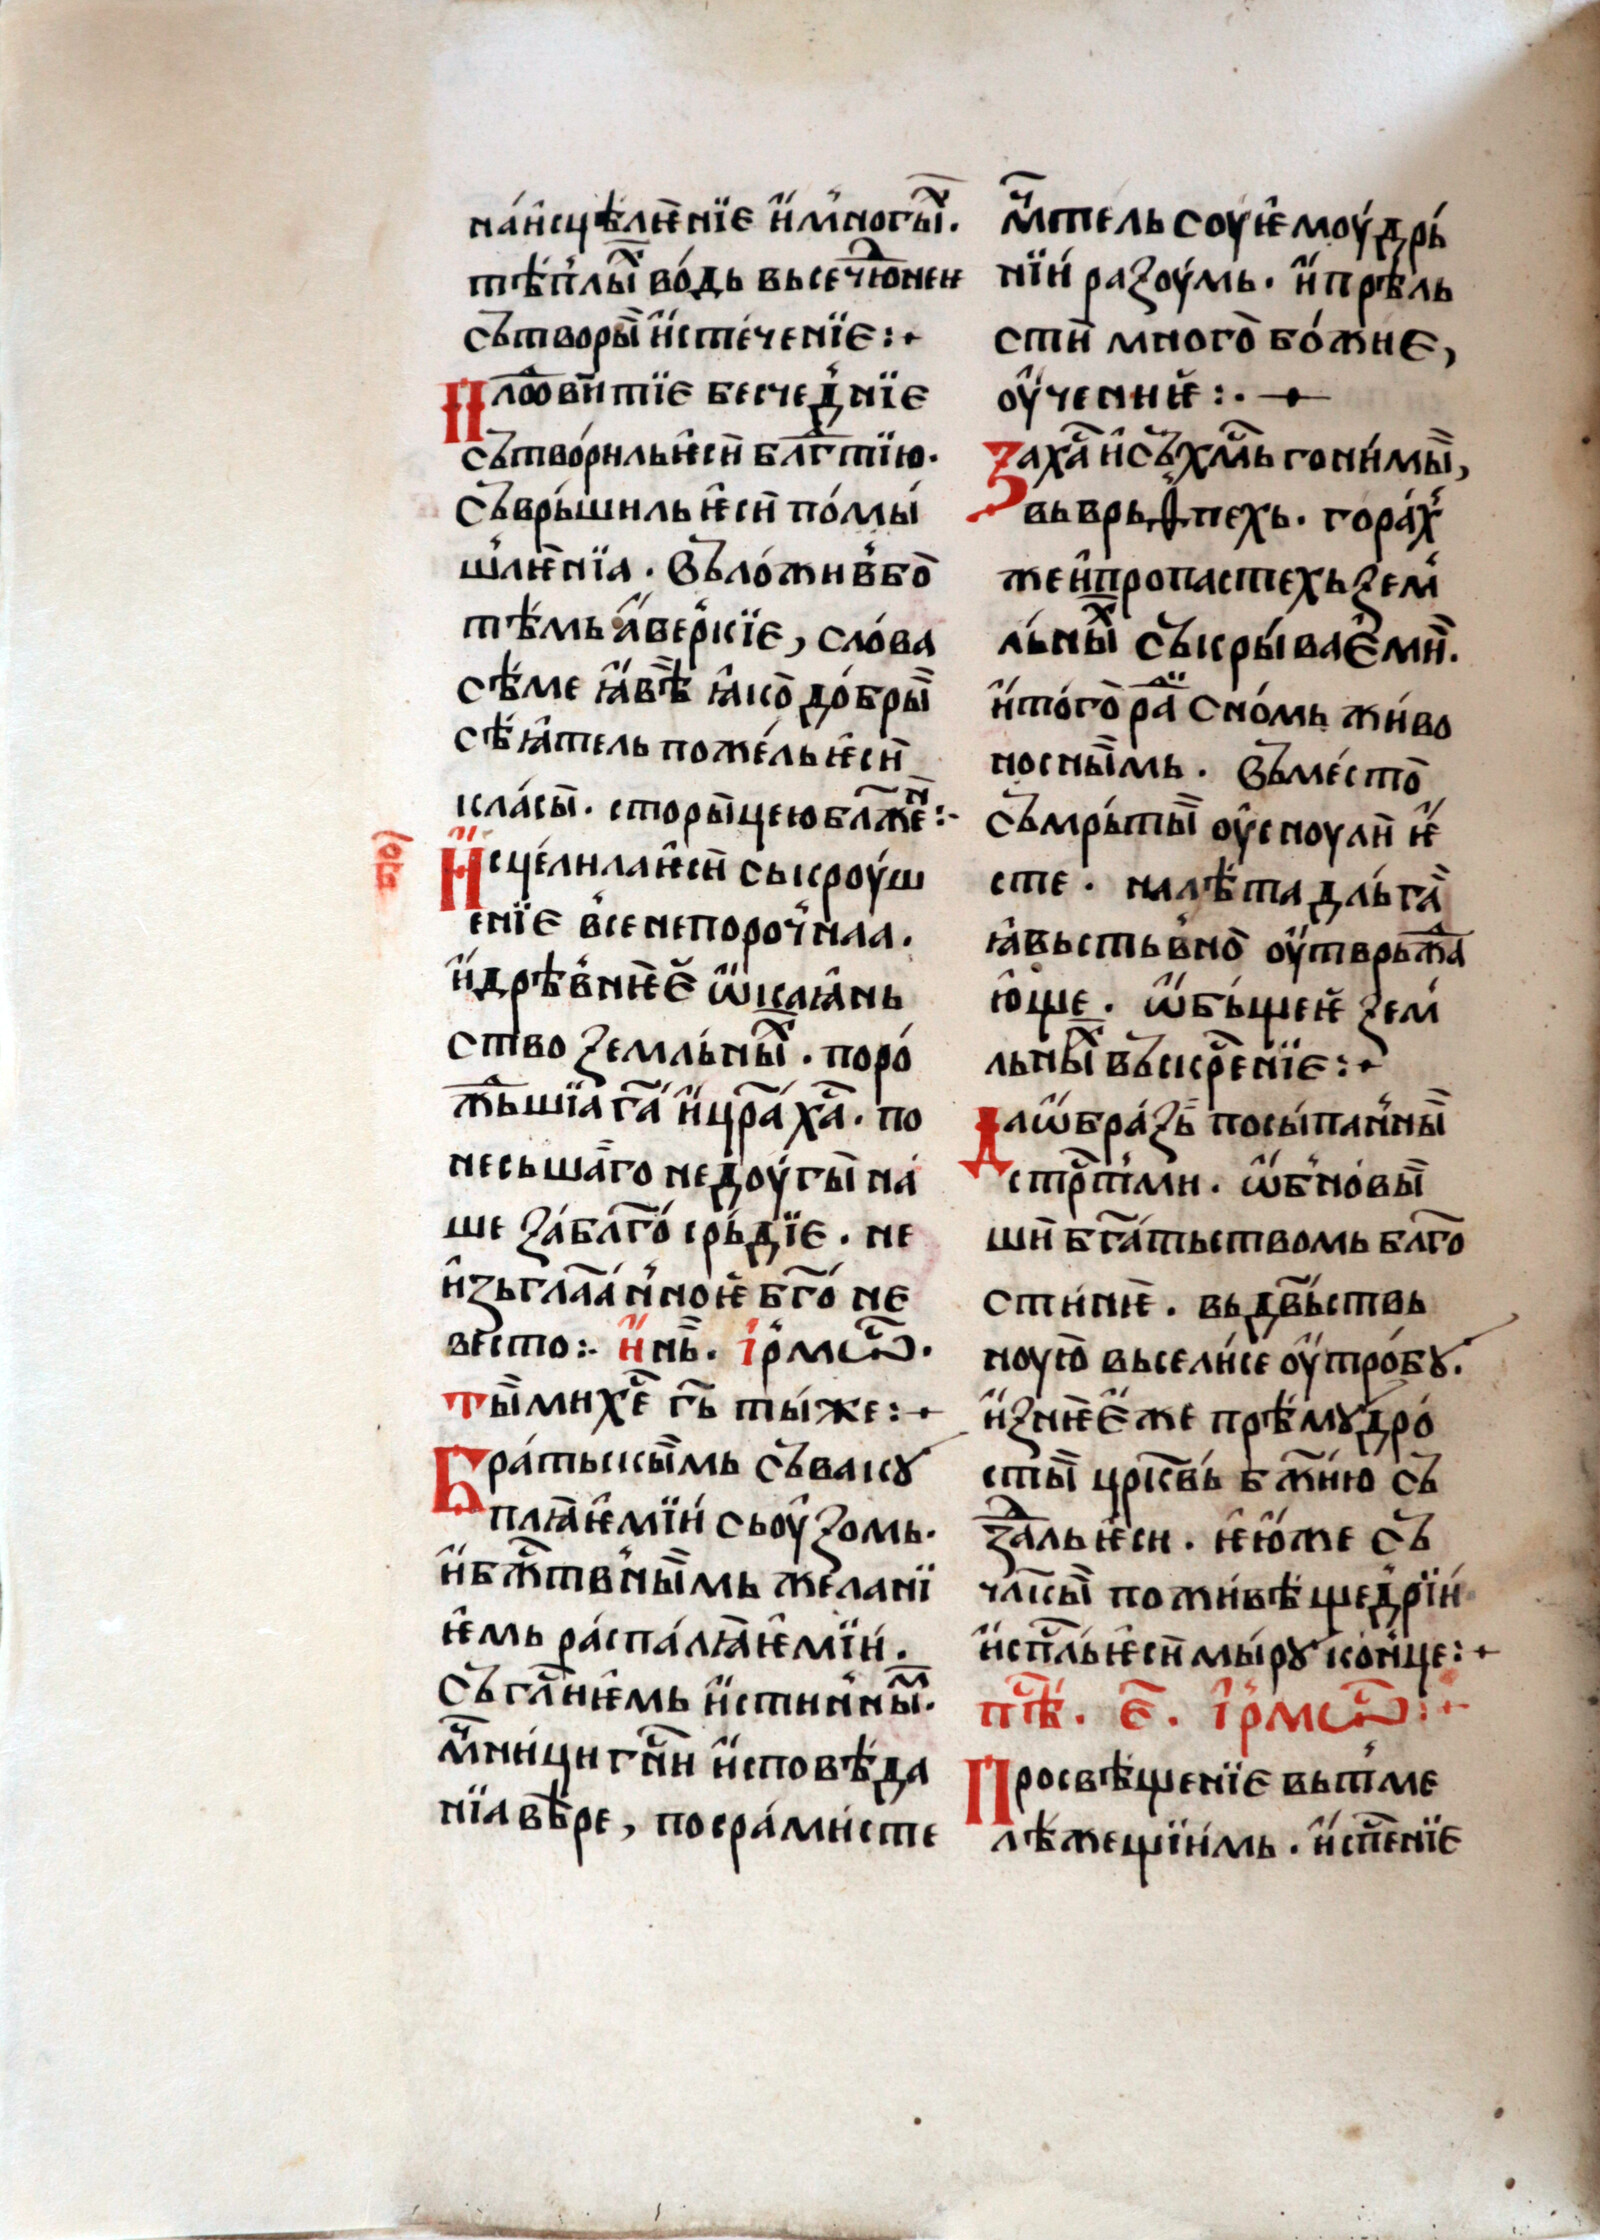 на́и҆сцѣлѥ́нїе и҆мно́гыⷯ.
тѣ́плыⷯ во́дь вьсечю́дⷩѥн
сътво́рьі и҆сте́ченїе:+
Плоⷣви́тїе бесче́днїе
сътво́рильѥ҆си́ блгⷣтїю.
съврь́шильѥ҆си́ по́мы́
шлѥ́нїа. въло́живⷠо
тѣ́мь а҆ве́ркїе, сло́ва
сѣ́ме ꙗ҆вѣ̀ ꙗ҆ко̀ до́брьі
сѣ́ꙗ҆тель поже́льѥ҆си́
кла́сьі. сторы́цеюблⷤаженⷩ:·
бгоⷣ
И҆сце́лилаѥ҆си́ съкроу́ш
енїе все непоро́чнаа.
и҆дрѣ́внѥе ѡ҆каꙗ҆нь
ство земль́ныⷯ. поро́
жⷣьшїа га҃ и҆цр҃а ха҃. по
несьша́го недоу́гьі на́
ше за́блг҃о срь́дїе. не
и҆зьгл҃а́нноѥ бг҃о не
весто:· и҆ нн҃ѣ. і҆рмѡⷭ.
ты́мнхе҃ гь҃ ты́же:+
Бра́тьскы́мь съвакꙋ
плꙗ́ѥ҆мїи сьоу́зомь.
и҆бжⷭтвнымь жела́нї
ѥ҆мь ра́спа́лꙗѥ҆мїи.
съгла́нѥмь и҆стинныⷨ.
мⷱни́цигн҃и и҆сповѣ́да
нїавѣ́ре, посра́мисте
мⷱтель соуѥмоу́дрь́
нїи ра́зоумь. и҆прѣ́ль
сти́ много̀ бо́жие,
оу҆че́ниѥ:. —+—
Заха҃ и҆съхм҃ь гони́мьі,
вьврьпехь. гора́хⷤ
жеи҆пропастехьзем
ль́ныⷯ съкры́вае҆ми.
и҆то́го ра́дⷣи сно́мь жи́во
носны́мь. въме́сто
съмрь́тьі оу҆сноу́ли ѥ҆
сте. налѣ́та дль́га
ꙗ҆вьсть́вно оу҆тврьжⷣа
ю҆ще. ѡ҆бь́щеѥ зем
ль́ныⷯ въскрⷭенїе:+
Даѡ҆бра́зь посы́панныⷨ
стрⷭтми. ѡ҆бно́вьі
ши́ бга́тьствомь блг҃о
сти́нѥ. вь дв҃ьствь
ноую̀ вьсели́се оу҆тро́бꙋ.
и҆знѥ́е҆же прѣ́мꙋдро́
стьі црⷦвь́ бж҃ию съ
здⷣа́льѥ҆си. ѥ҆ю҆же съ
члⷦсьі по живѣ́ ще́дрїи
и҆спⷭльѥ҆си́ мы́рꙋ ко́нце:+
пⷭѣⷩ. е҃. і҆рмѡⷭ:+
Просвѣще́нїе вьтме
лѣ́жещїимь. и҆спⷭенїе